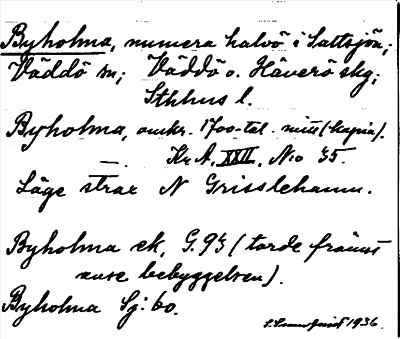 Byholma, numera halvö i Saltsjön;
Väddö sn; Väddö o. Häverö skg;
Sthlms l.
Byholma, omkr. 1700-tal. mitt (kopia).
—. Kr A. XXII. No 35.
Läge strax N Grisslehamn.
Byholma ek, G. 93 (torde främst
avse bebyggelsen).
Byholma Sj: 60.
1936.